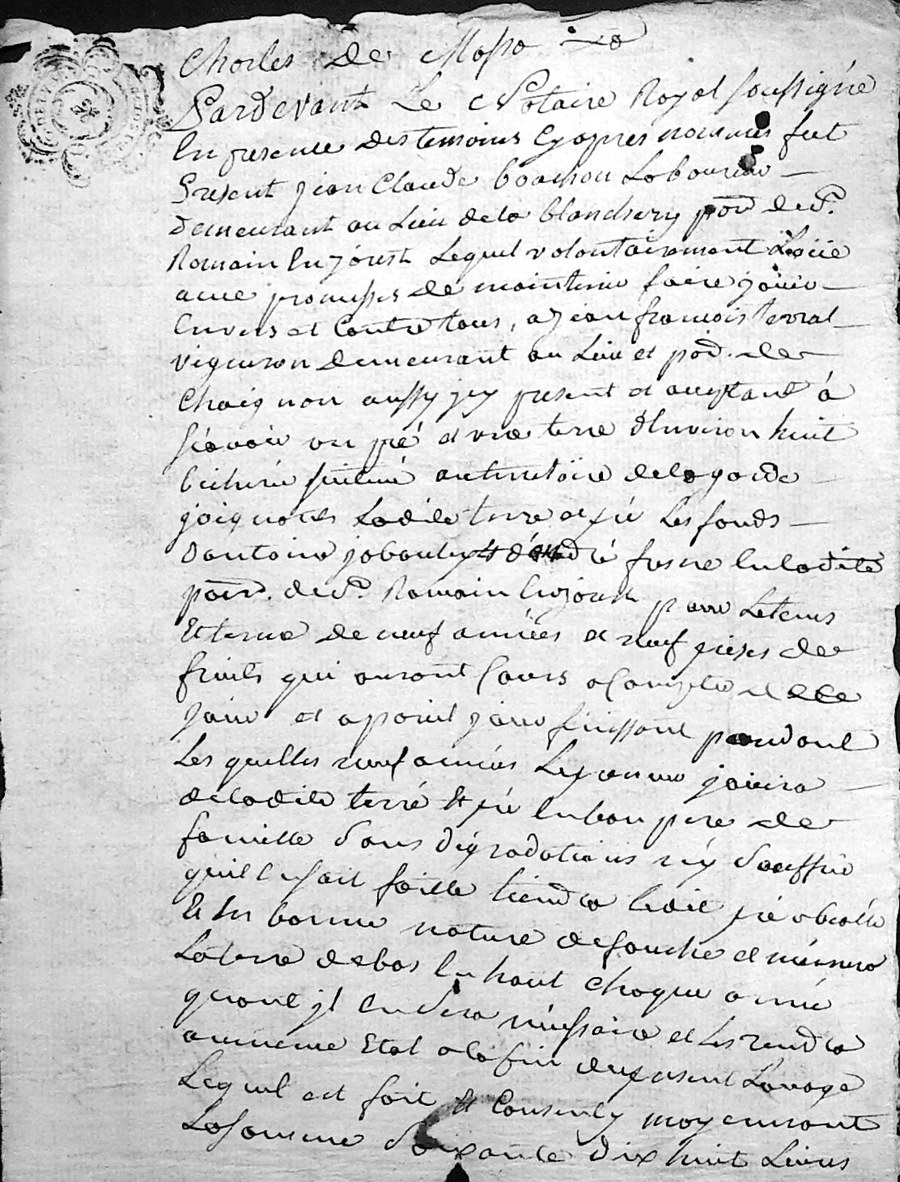 Charles de
Pardevant Le Notaire Royal soussigné
En presence des temoins cy apres nommés fut
Present jean Claude bouchou Laboureur
demeurant au Lieu de la blanchery parr. de St.
Romain En joust Lequel volontairement
avec promesses de maintenir faire jouir
Envers et Contre tous, a jean francois terrat
vigneron demeurant au Lieu et par. de
Chaignon aussy jcy present et acceptant à
sçavoir un pré et une terre d'Environ huit
bicherée scitués au territoire de la garde
joignants Ladite terre et pré Les fonds
d'antoine en Ladite
parr. de St. Romain En joust pour Le tems
Et terme de neuf années et neuf prises de
fruits qui auront Cours a Compter de
et a pareil jour finissant pendant
Les quelles neuf années Le preneur jouira
de Ladite terre et pré En bon pere de
famille sans dégradations n'y souffrir
qu'il En soit faitte tiendra Ledit pré
Et En bonne nature de fauche et
La terre de bas En haut chaque année
quand jl En sera nécessaire et Les rendra
au meme Etat a la fin du present Louage
Lequel est fait et Consenty moyennant
La somme soixante dix huit Livres